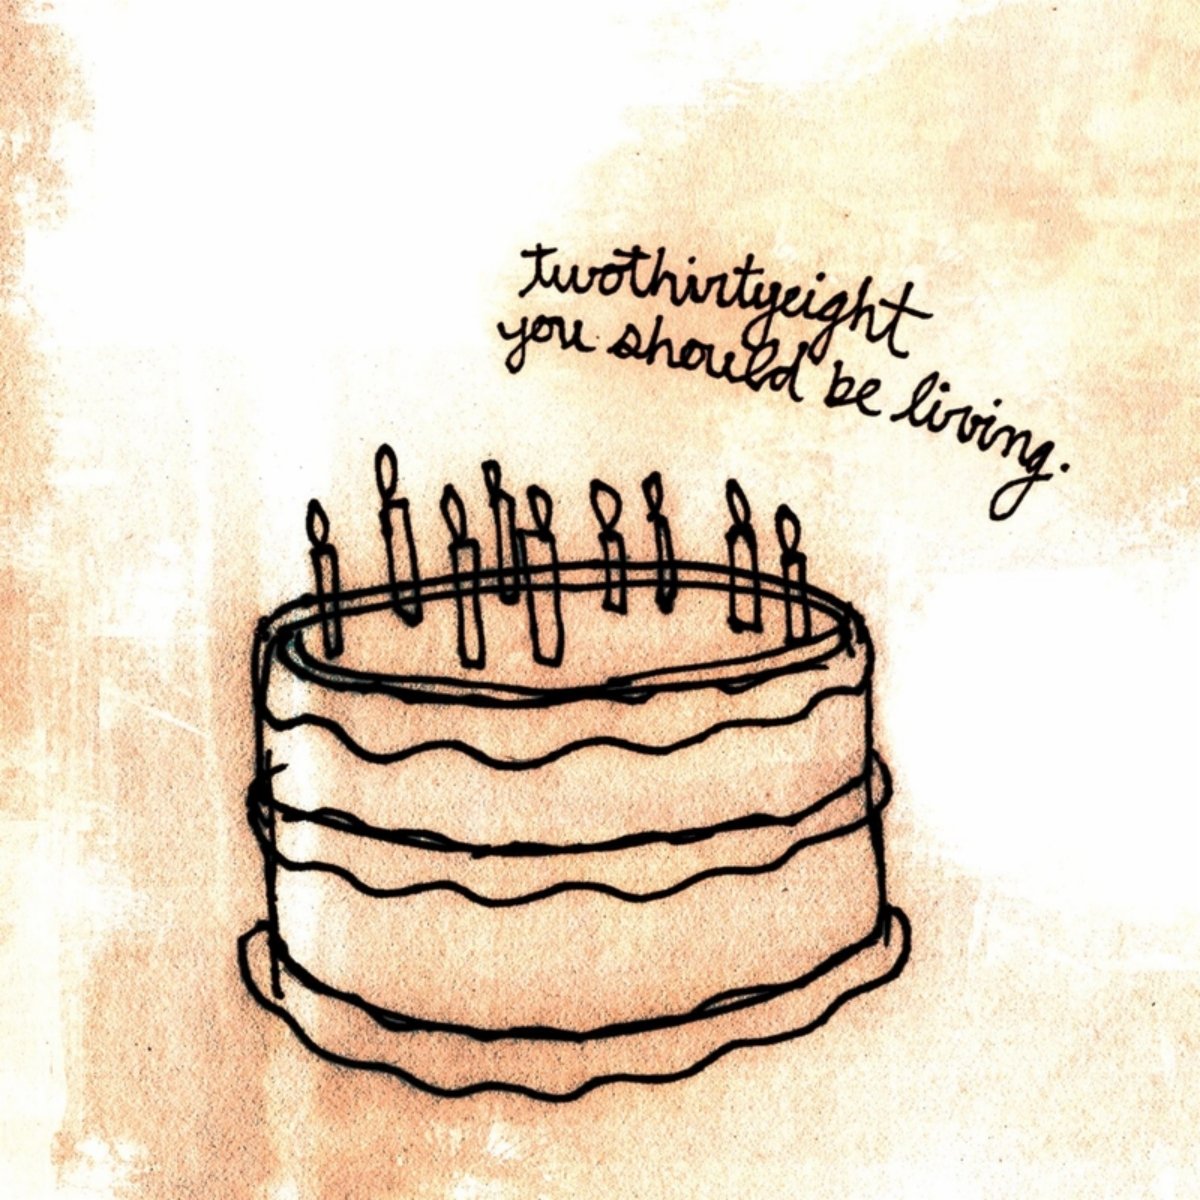 twothirtyeight
you should be living.